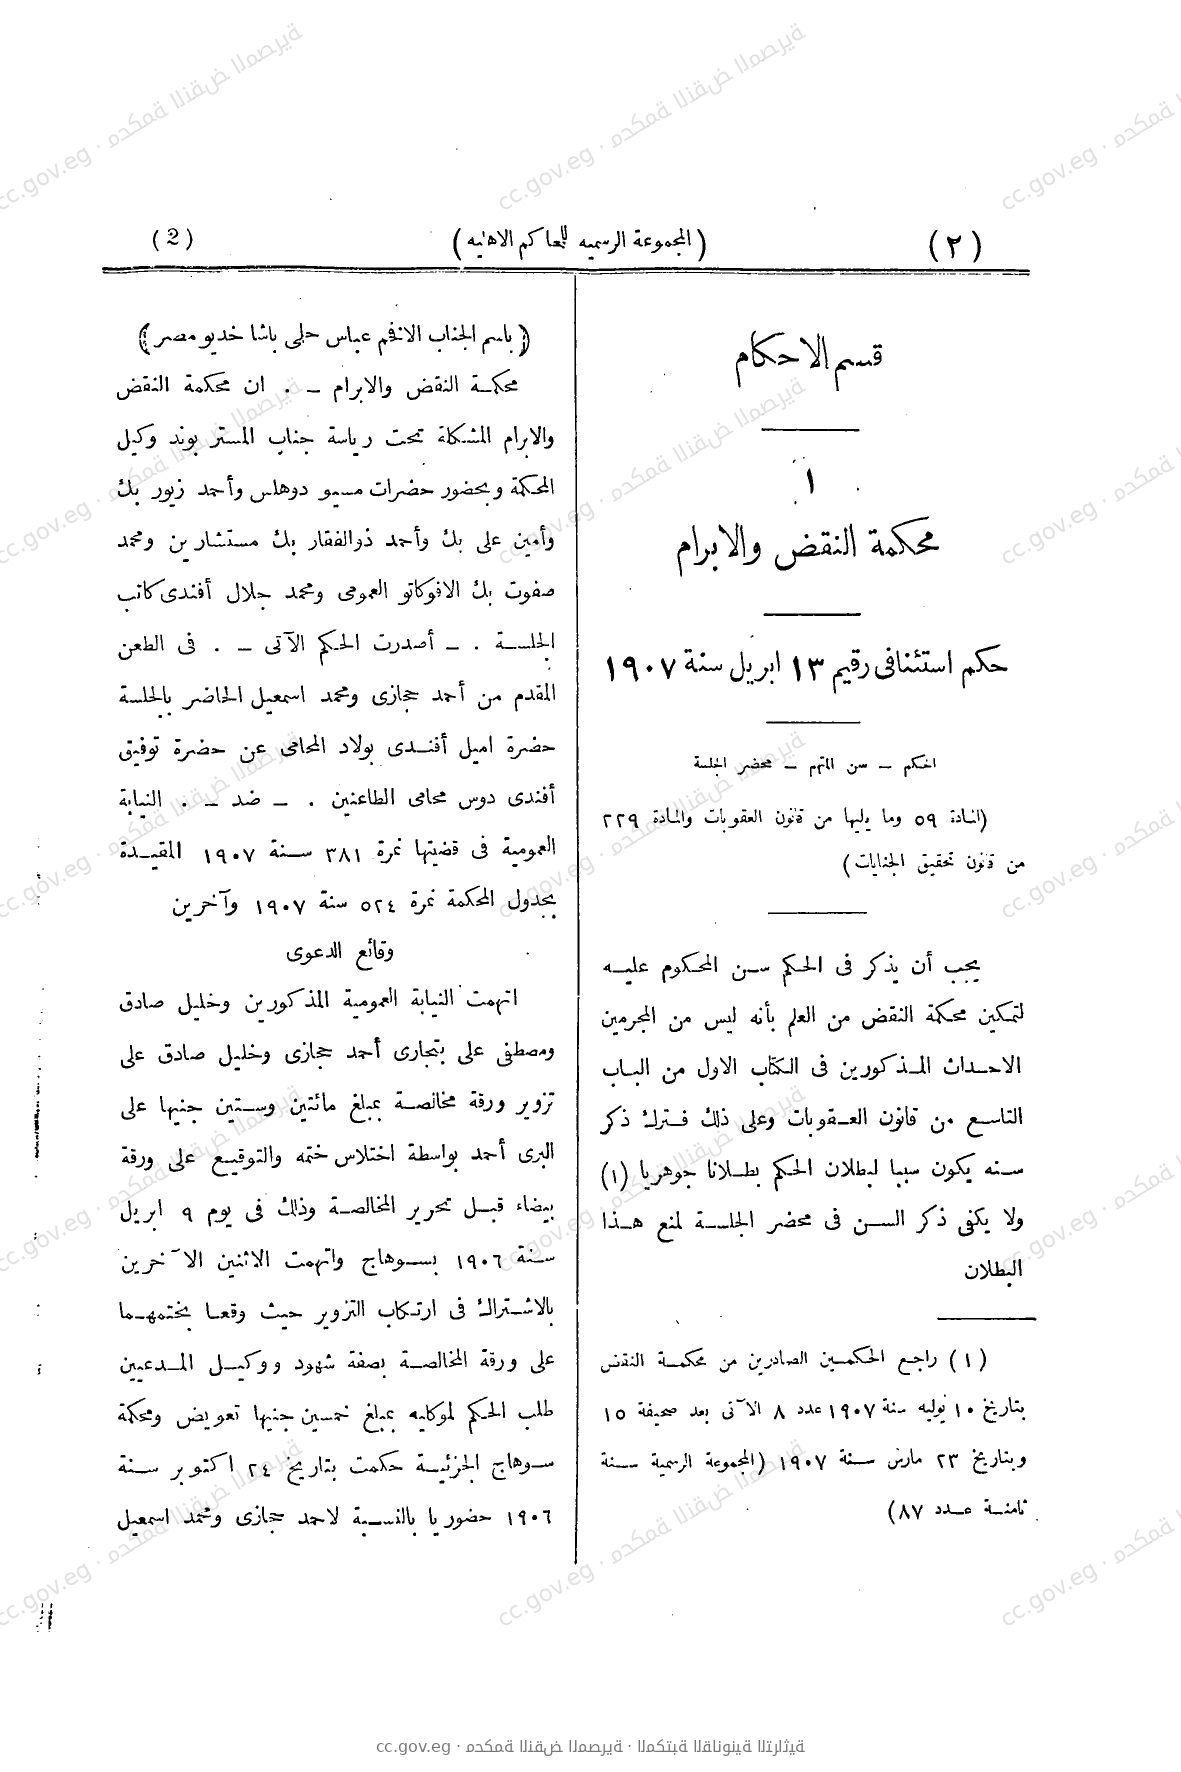 (٢)
(المجموعة الرسميه للمحاكم الاهليه)
(2)
قسم الاحكام
١
محكمة النقض والابرام
حكم استئنافى رقيم ١٣ ابريل سنة ١٩٠٧
الحكم – سن المتهم – محضر الجلسة
(المادة ٥٩ وما يليها من قانون العقوبات والمادة ٢٢٩
من قانون تحقيق الجنايات)
يجب أن يذكر فى الحكم سن المحكوم عليه
لتمكين محكمة النقض من العلم بأنه ليس من المجرمين
الاحداث المذكورين فى الكتاب الاول من الباب
التاسع من قانون العقوبات وعلى ذلك فترك ذكر
سنه يكون سببا لبطلان الحكم بطلانا جوهريا (١)
ولا يكفى ذكر السن فى محضر الجلسة لمنع هذا
البطلان
(١) راجع الحكمين الصادرين من محكمة النقض
بتاريخ ١٠ نوليه سنة ١٩٠٧ عدد ٨ الآتى بعد صحيفة ١٥
وبتاريخ ٢٣ مارس سنة ١٩٠٧ (المجموعة الرسمية سنة
ثامنة عدد ٨٧)
(باسم الجناب الافخم عباس حلمى باشا خديو مصر)
محكمة النقض والابرام – . ان محكمة النقض
والابرام المشكلة تحت رياسة جناب المستر بوند وكيل
المحكمة وبحضور حضرات مسيو دوهلس وأحمد زيور بك
وأمين على بك وأحمد ذوالفقار بك مستشارين ومحمد
صفوت بك الافوكاتو العمومى ومحمد جلال أفندى كاتب
الجلسة . – أصدرت الحكم الآتى – . فى الطعن
المقدم من أحمد حجازى ومحمد اسمعيل الحاضر بالجلسة
حضرة اميل أفندى بولاد المحامى عن حضرة توفيق
أفندى دوس محامى الطاعنين . – ضد – . النيابة
العمومية فى قضيتها نمرة ٣٨١ سنة ١٩٠٧ المقيدة
بجدول المحكمة نمرة ٥٢٤ سنة ١٩٠٧ وآخرين
وقائع الدعوى
اتهمت النيابة العمومية المذكورين وخليل صادق
ومصطفى على بتجارى أحمد حجازى وخليل صادق على
تزوير ورقة مخالصة بمبلغ مائتين وستين جنيها على
البرى أحمد بواسطة اختلاس ختمه والتوقيع على ورقة
بيضاء قبل تحرير المخالصة وذلك فى يوم ٩ ابريل
سنة ١٩٠٦ بسوهاج واتهمت الاثنين الآخرين
بالاشتراك فى ارتكاب التزوير حيث وقعا بختمهما
على ورقة المخالصة بصفة شهود ووكيل المدعيين
طلب الحكم لموكليه بمبلغ خمسين جنيها تعويض ومحكمة
سوهاج الجزئية حكمت بتاريخ ٢٤ اكتوبر سنة
١٩٠٦ حضوريا بالنسبة لاحمد حجازى ومحمد اسمعيل
cc.gov.eg · محكمة النقض المصرية · المكتبة القانونية التراثية